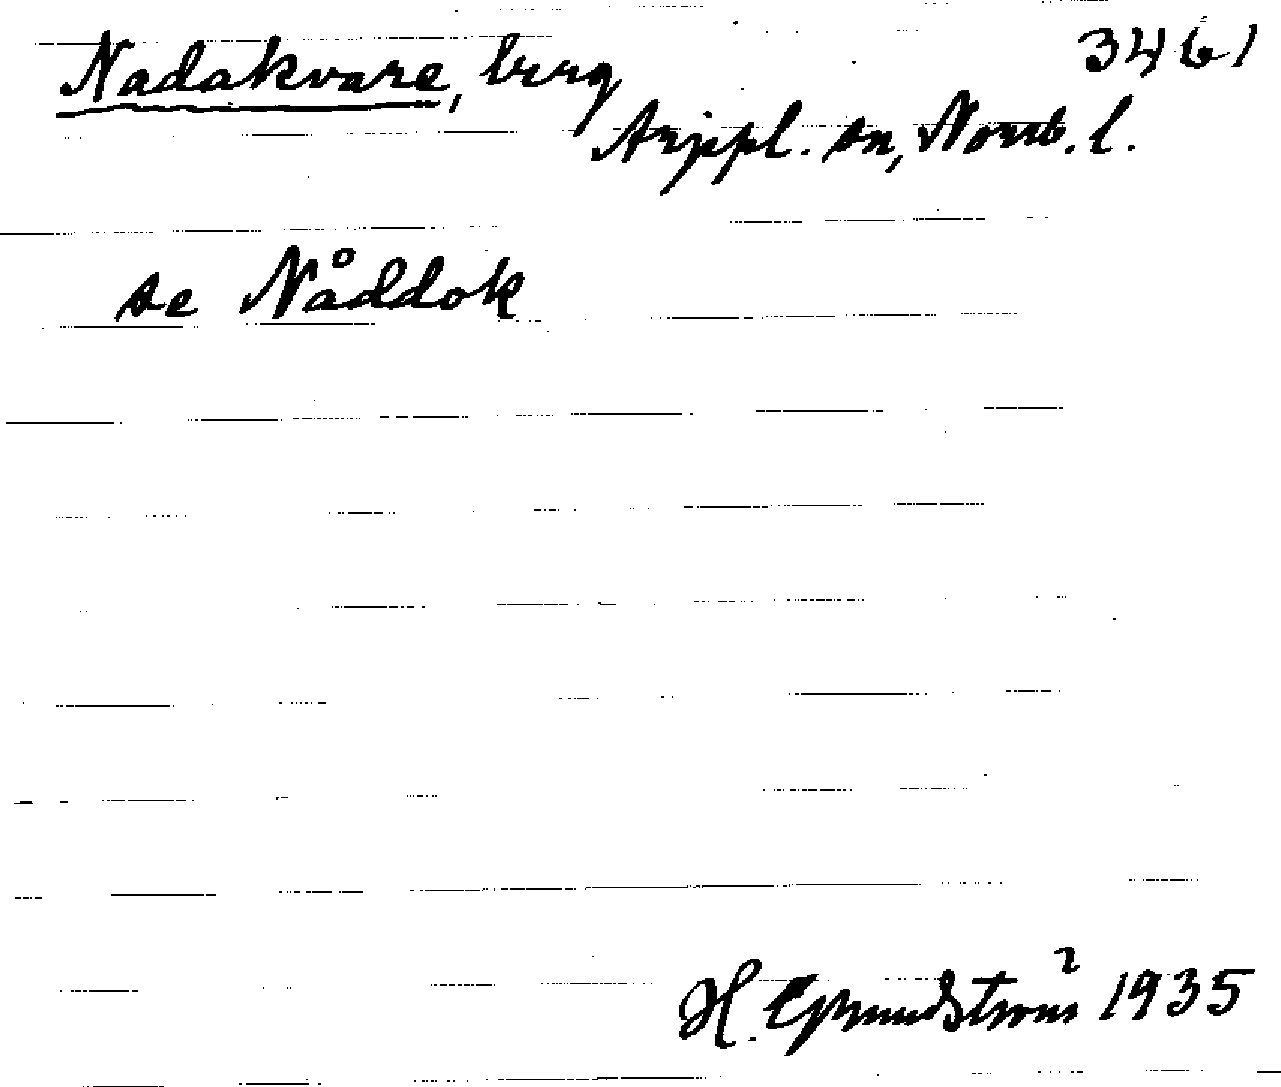 Nadakvare, berg 3461
Arjepl. sn, Norrb. l.
se Nåddok
H. Grundström 1935